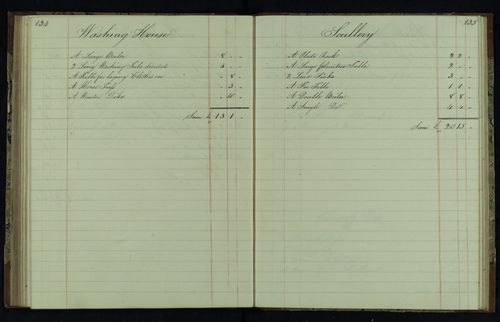 134
Washing House
A Large Boiler 8 - -
2 Long Washing Tubs divided 4 - -
A Table for laying Clothes on - 8 -
A Horse - 3 -
A Winter - 10 -
Sum £ 13 1 -
135
Scullery
A Plate Rack 2 2 -
A Large Table 2 - -
2 Lead Sinks 3 - -
A Fir Table 1 1 -
A Double Boiler 8 8 -
A Single Do 4 4 -
Sum £ 20 15 -